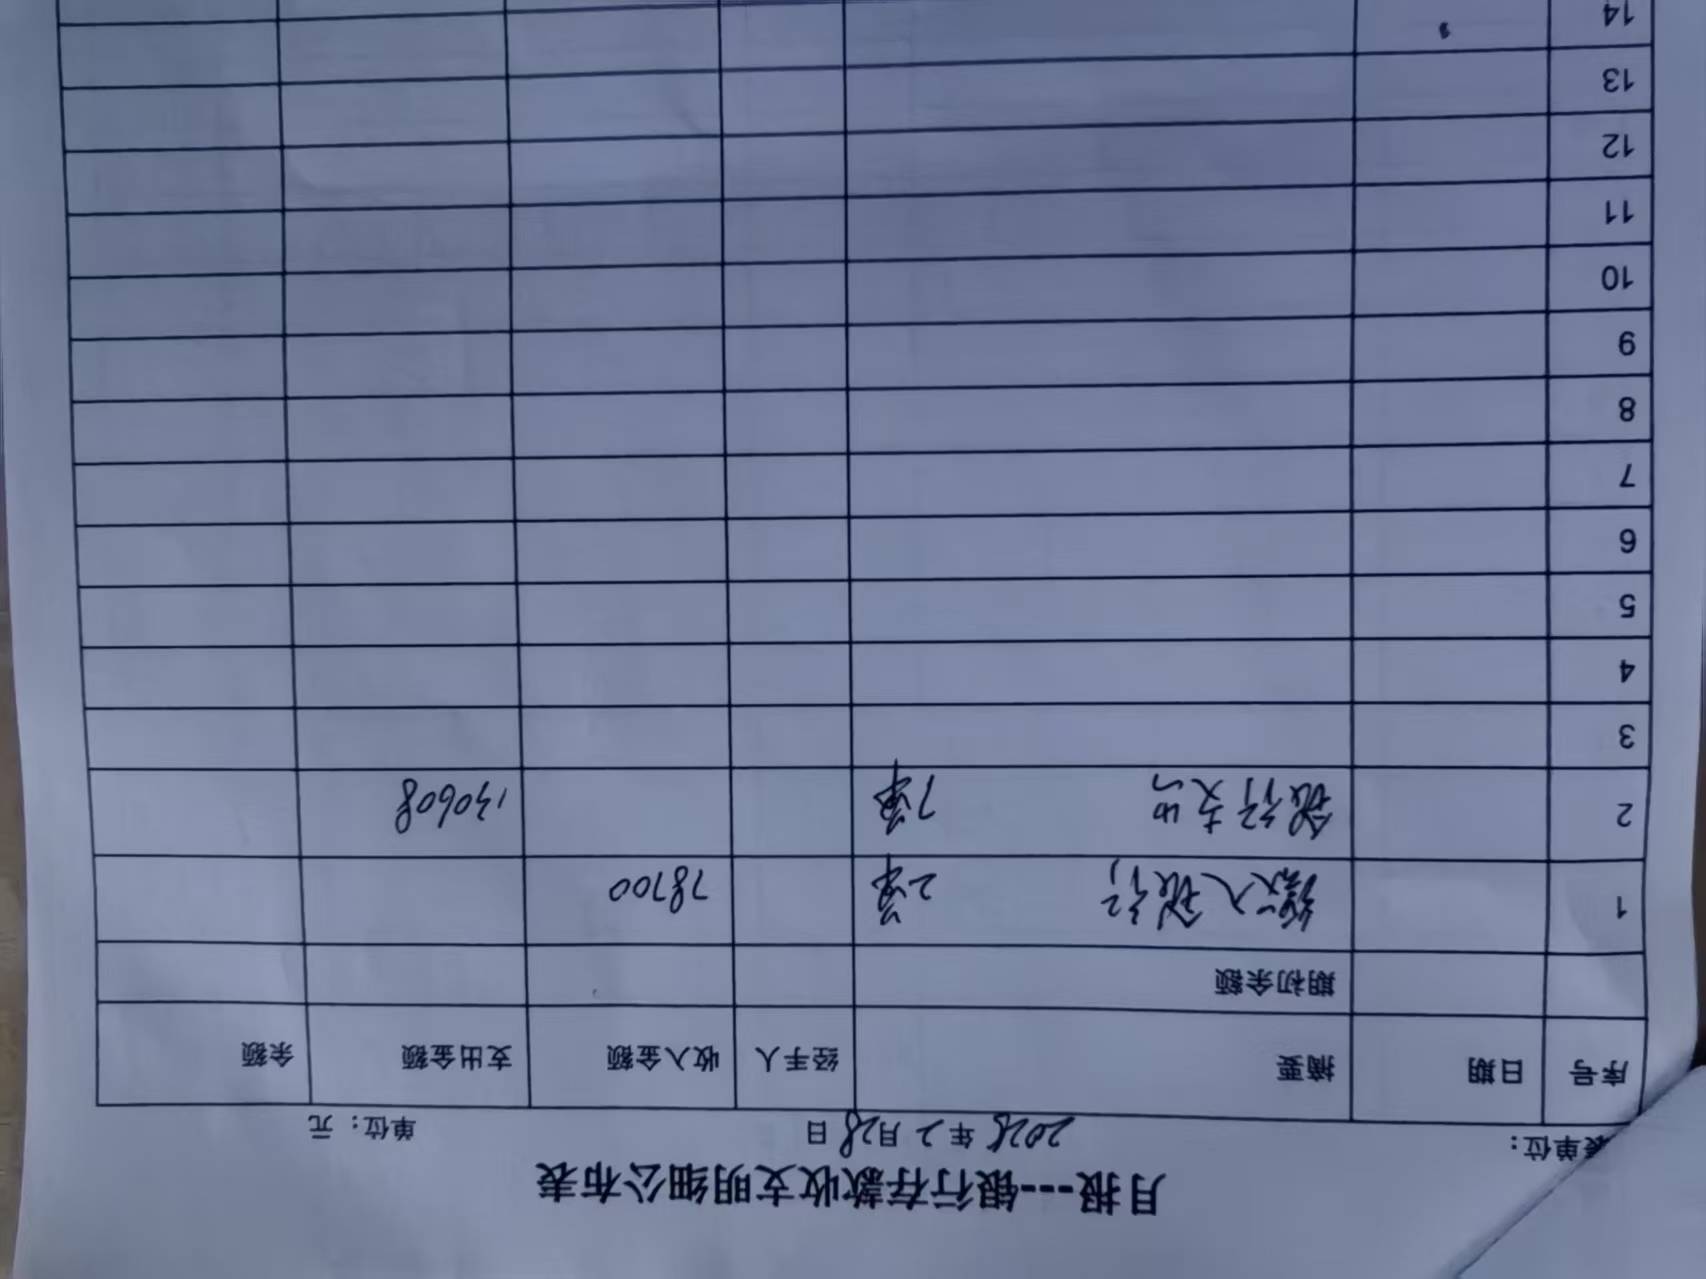 月报---银行存款收支明细公布表
表单位： 2025年2月28日 单位：元
序号 日期 摘要 经手人 收入金额 支出金额 余额
期初余额
1 缴入银行 2单 78700
2 银行支出 7单 130608
3
4
5
6
7
8
9
10
11
12
13
14